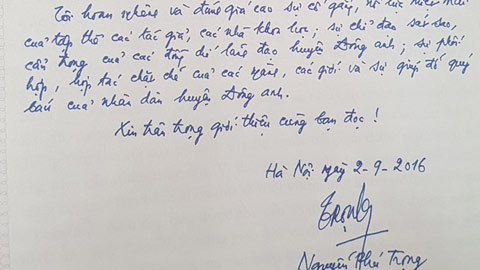 Tôi hoan nghênh và đánh giá cao sự cố gắng, nỗ lực
của tập thể các tác giả, các nhà khoa học; sự chỉ đạo sát sao,
cẩn trọng của các đồng chí lãnh đạo huyện Đông anh; sự phối
hợp, hợp tác chặt chẽ của các ngành, các giới và sự giúp đỡ quý
báu của nhân dân huyện Đông anh.
Xin trân trọng giới thiệu cùng bạn đọc!
Hà Nội ngày 2-9-2016
Trọng
Nguyễn Phú Trọng